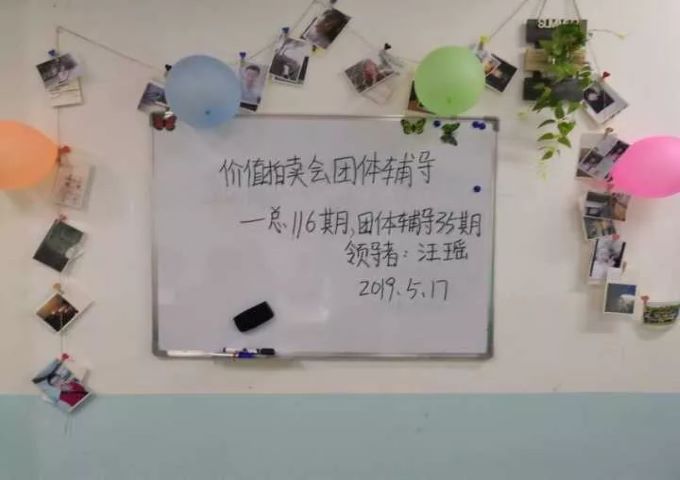 价值拍卖会团体辅导
—总116期,团体辅导35期
领导者:汪瑶
2019.5.17